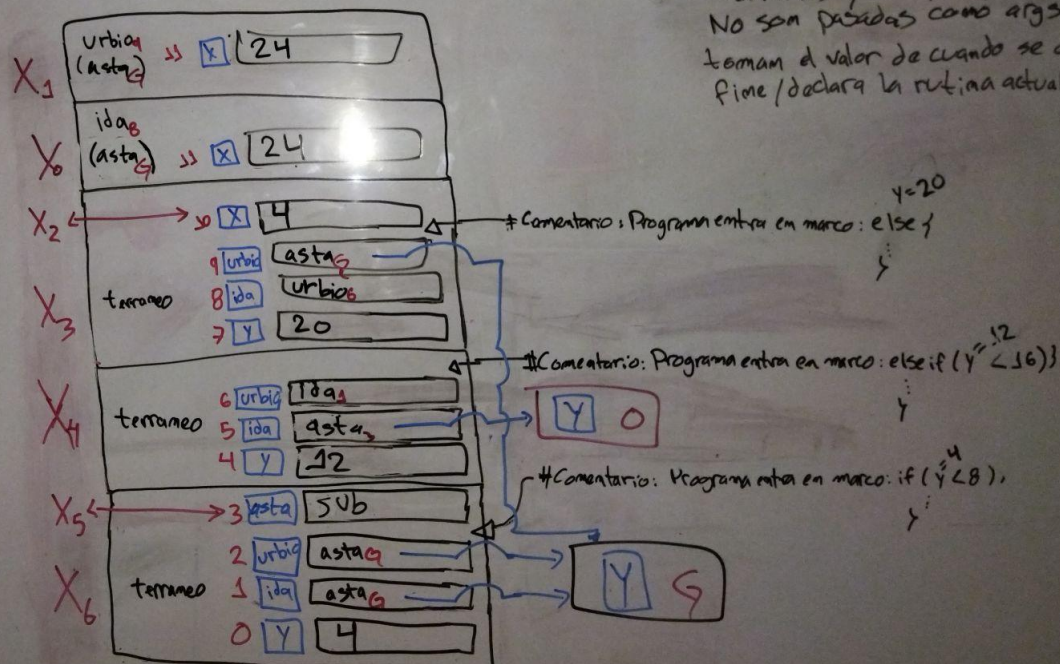 No som pasadas como args
toman el valor de cuando se
fime/declara la rutina actua
X1 urbia9 (astaG) » X 24
X0 ida8 (astaG) » X 24
y=20
X2 X 4 #Comentario: Programa entra en marco: else {
}
9 urbia astaG
X3 terraneo 8 ida urbia6
7 Y 20
#Comentario: Programa entra en marco: else if (y=12 < 16) {
}
X4 terraneo 6 urbia ida1
5 ida asta3 Y 0
4 Y 12
#Comentario: Programa entra en marco: if (y=4 < 8),
}
X5 3 asta sub
2 urbia astaG
X6 terraneo 1 ida astaG Y G
0 Y 4